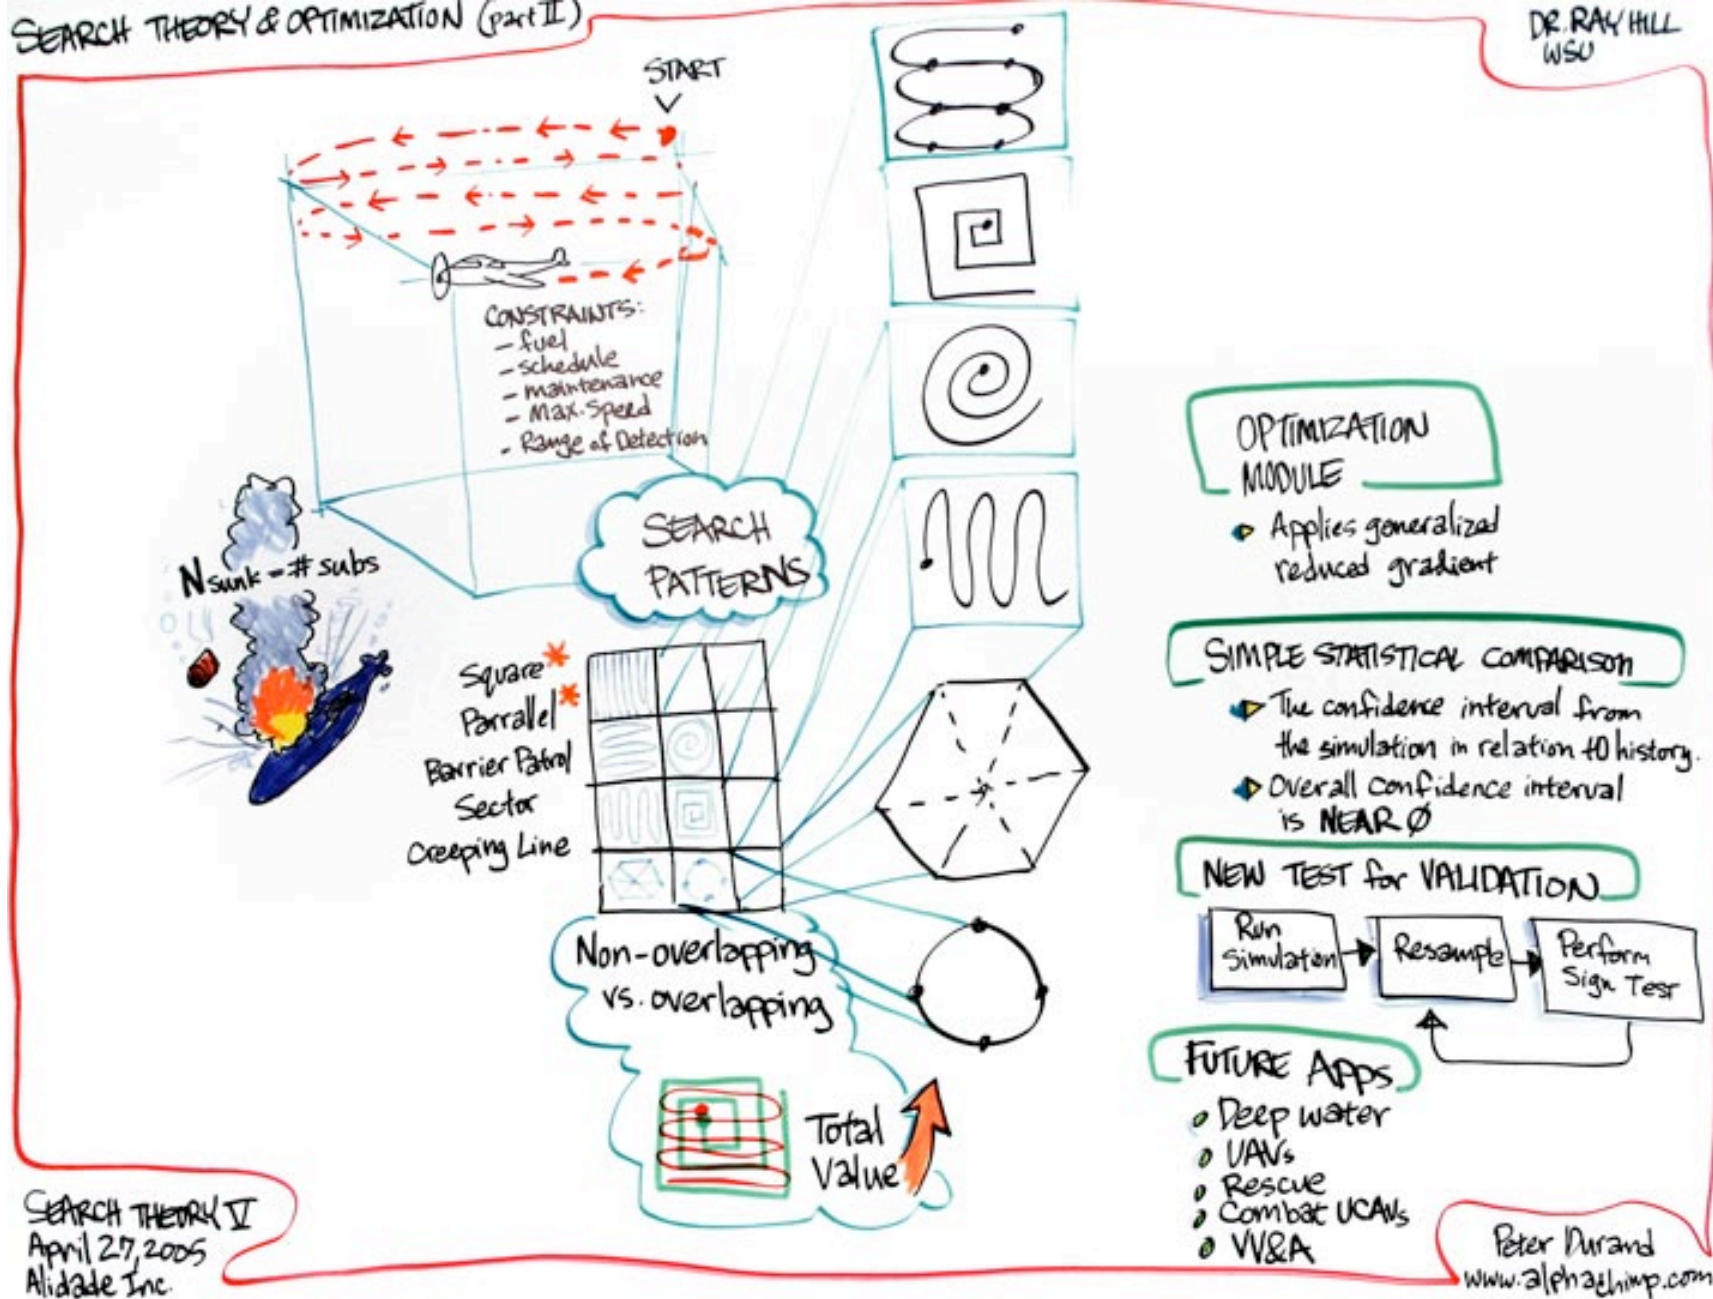 SEARCH THEORY & OPTIMIZATION (part II)
DR. RAY HILL
WSU
START
CONSTRAINTS:
- fuel
- schedule
- maintenance
- Max. Speed
- Range of Detection
N sunk - # subs
SEARCH
PATTERNS
Square*
Parrallel*
Barrier Patrol
Sector
Creeping Line
Non-overlapping
vs. overlapping
Total
Value
OPTIMIZATION
MODULE
Applies generalized
reduced gradient
SIMPLE STATISTICAL COMPARISON
The confidence interval from
the simulation in relation to history.
Overall confidence interval
is NEAR Ø
NEW TEST for VALIDATION
Run
Simulation
Resample
Perform
Sign Test
FUTURE APPS
Deep water
UAVs
Rescue
Combat UCAVs
VV&A
SEARCH THEORY V
April 27, 2005
Alidade Inc.
Peter Durand
www.alphachimp.com